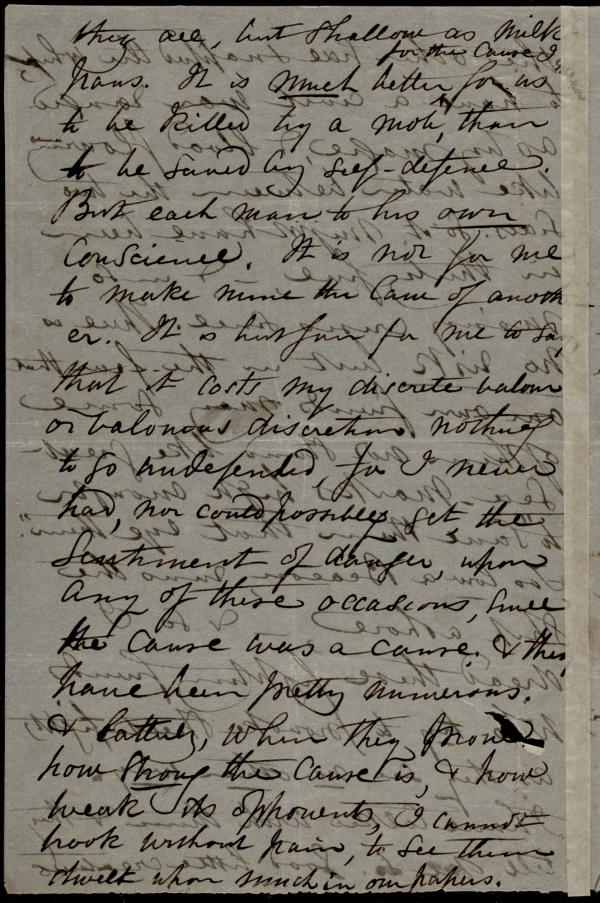 they are, but shallow as milk
for the Cause I
pans. It is much better for us
to be killed by a mob, than
to be saved by self-defence.
But each man to his own
Conscience. It is not for me
to make mine the Cause of anoth
er. It is but fair for me to say
that it costs my discrete valour
or valourous discretion nothing
to go undefended, for I never
had, nor could possibly get the
Sentiment of danger, upon
any of these occasions, since
the Cause was a cause. & they
have been pretty numerous.
& latterly, when they prove
how strong the Cause is, & how
weak its opponents, I cannot
without pain, to see them
dwelt upon much in our papers.